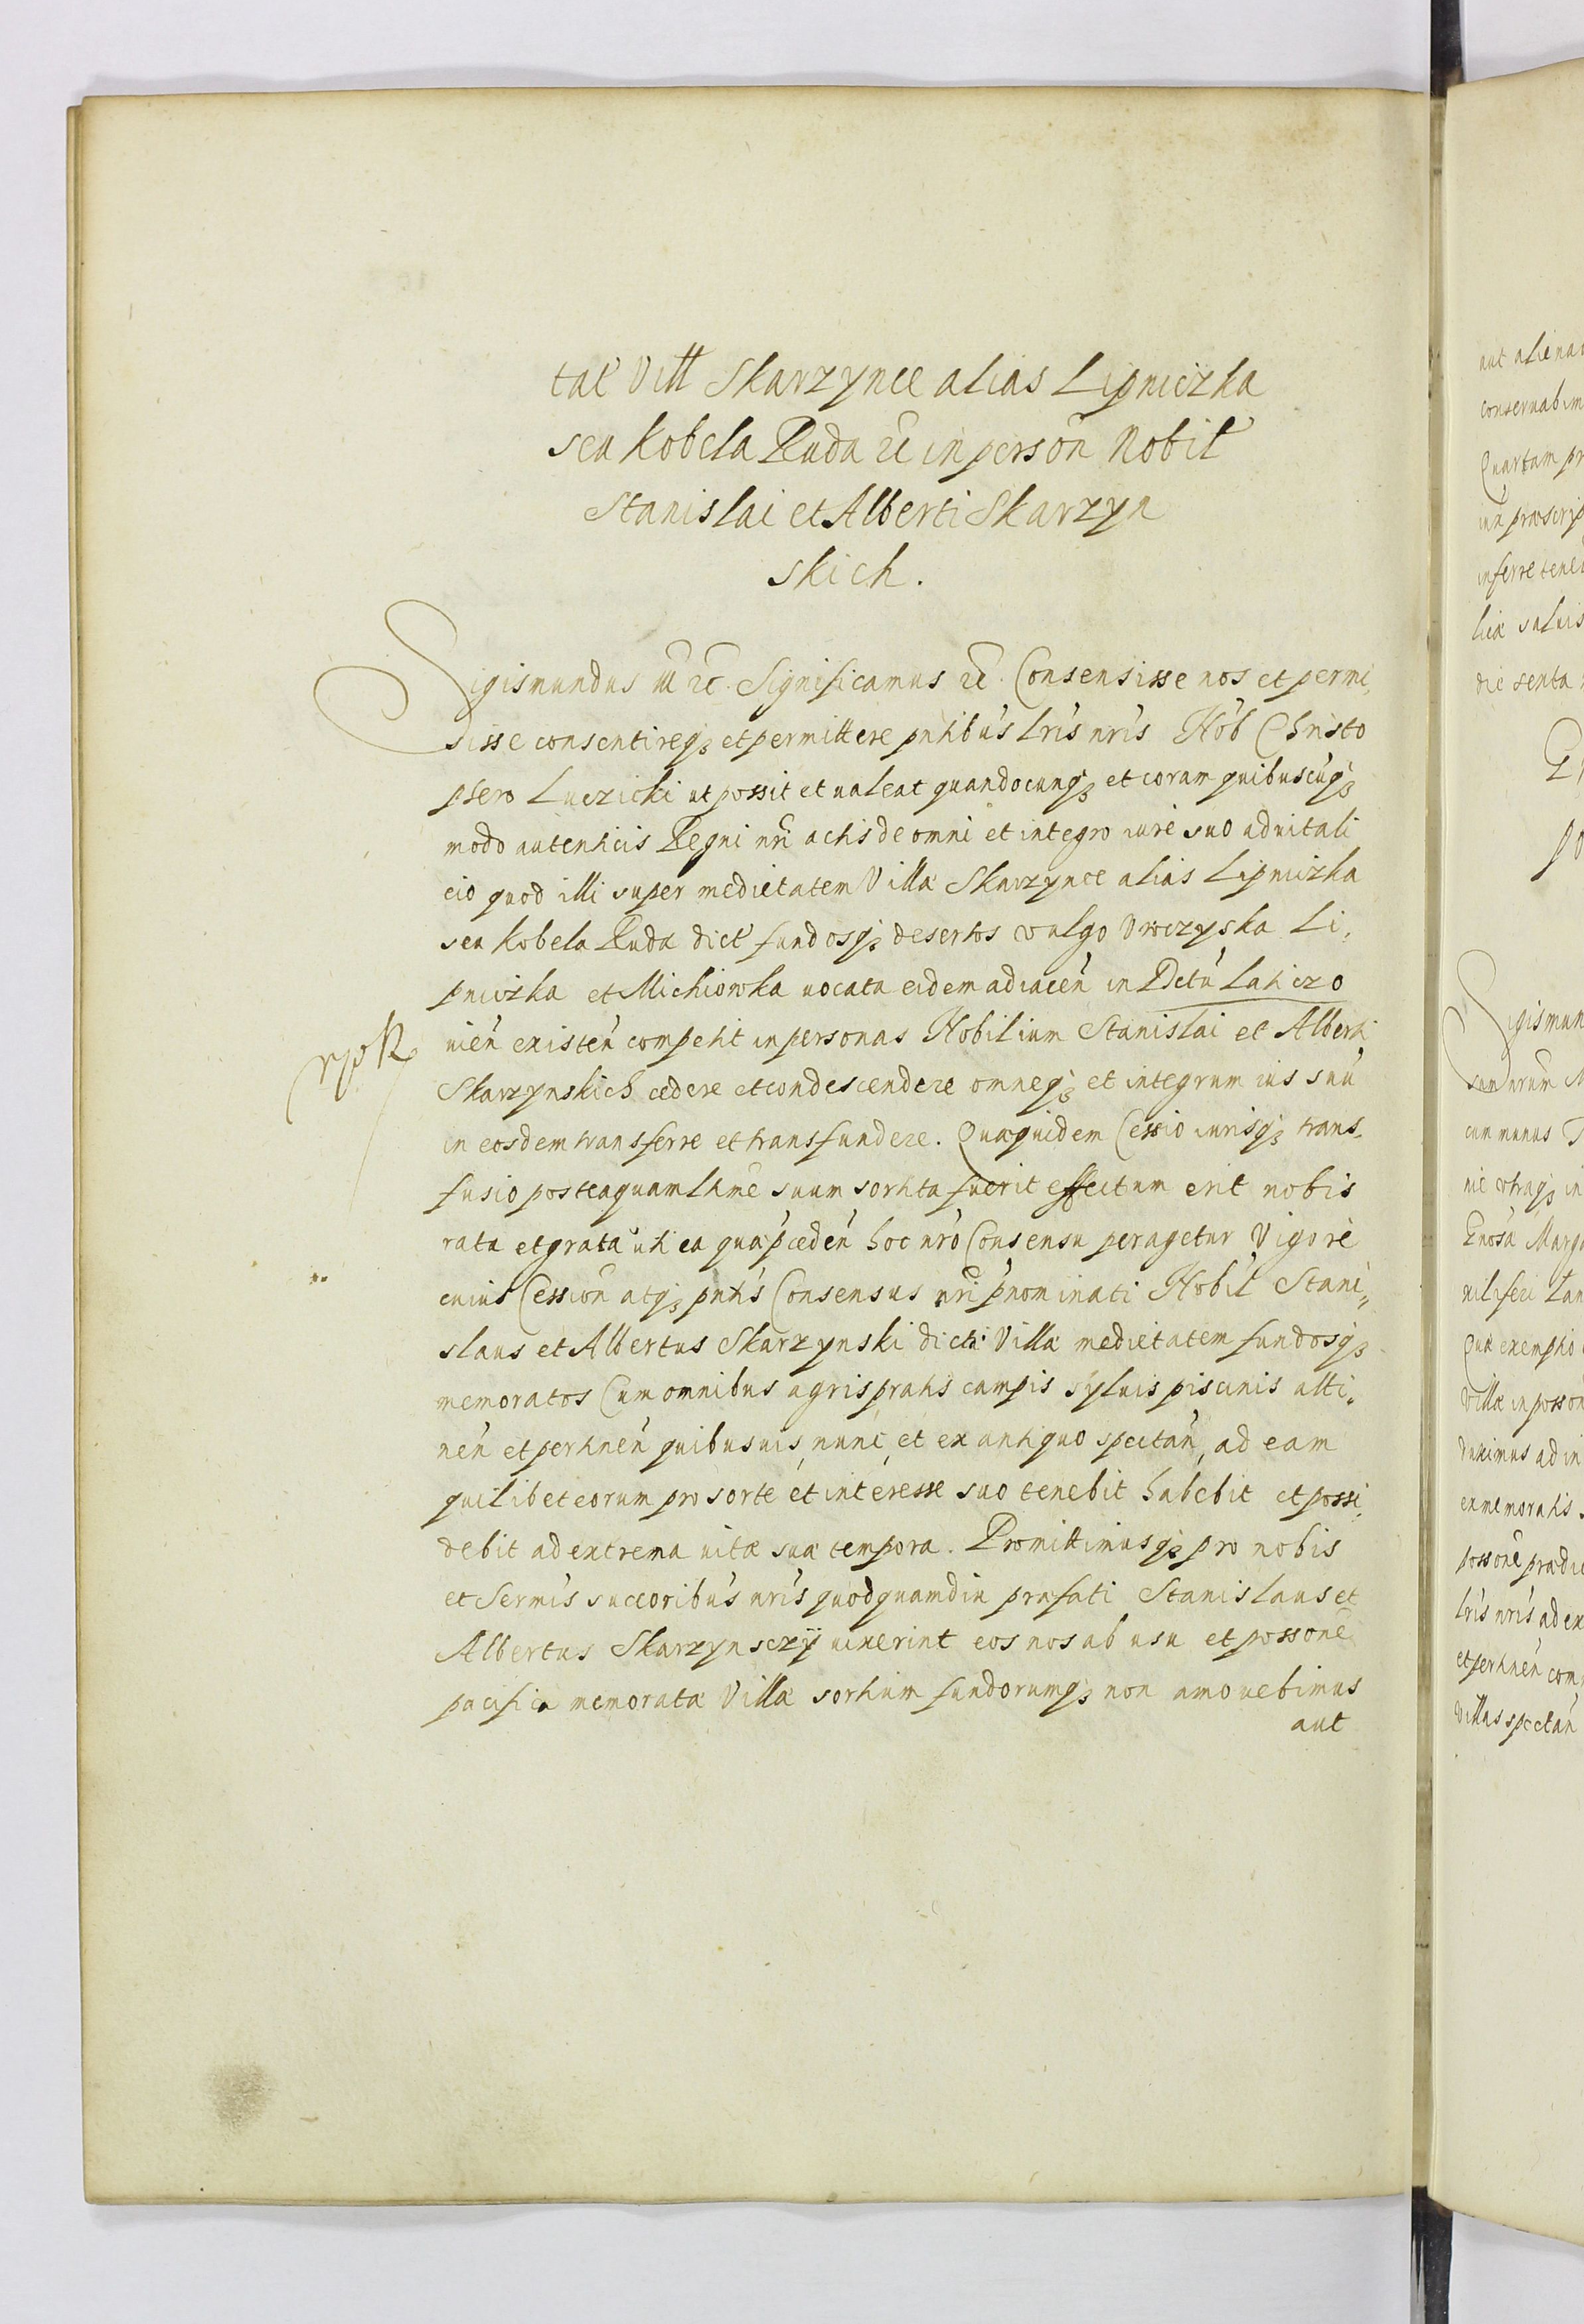 tat Vill Skarzynce alias Lipniczka
seu Kobela Ruda et in person Nobil
Stanislai et Alberti Skarzyn
skich.
Sigismundus III etc. Significamus etc. Consensisse nos et permi,
sisse consentireq3 et permittere pntibus Lris nris Nob Christo
phero Luczicki ut possit et ualeat quandocunq3 et coram quibuscuq3
modo autenticis Regni nri actis de omni et integro iure suo aduitali
cio quod illi super medietatem Villa Skarzynce alias Lipniczka
seu Kobela Ruda dict fundosq3 desertos vulgo Vroczyska Li,
pniczka et Michiowka uocata eidem adiacen in Dctu Laticzo
uien existen competit in personas Nobilium Stanislai et Alberti
Skarzynskich cedere et condescendere omneq3 et integrum ius suu
in eosdem transferre et transfundere. Quaquidem Cessio iurisq3 trans,
fusio posteaquam ltime suum sortita fuerit effectum erit nobis
rata et grata uti ea qua pceden hoc nro Consensu peragetur Vigore
cuius Cession atq3 pntis Consensus nri pnominati Nobil Stani,,
slaus et Albertus Skarzynski dicta Villa medietatem fundosq3
memoratos Cum omnibus agris pratis campis syluis piscinis atti,,
nen et pertinen quibusuis, nunc, et ex antiquo spectan, ad eam
quilibet eorum pro sorte et interesse suo tenebit habebit et possi,
debit ad extrema uitæ sua tempora. Promittimusq3 pro nobis
et Sermis succoribus nris quod quamdiu prafati Stanislaus et
Albertus Skarzynsczÿ uixerint eos nos ab usu et possone
pacifica memorata Villa sortium fundorumq3 non amouebimus
aut
aut aliena
conseruabim
Quartam pr
præscrip
inferre tene
liæ saluis
die senta
Sigismun
nrum M
cum munus
Marga
Villæ in posson
ad in
ex memoratis
possone prædic
Lris nris ad ex
et pertinen com
Villas spectan